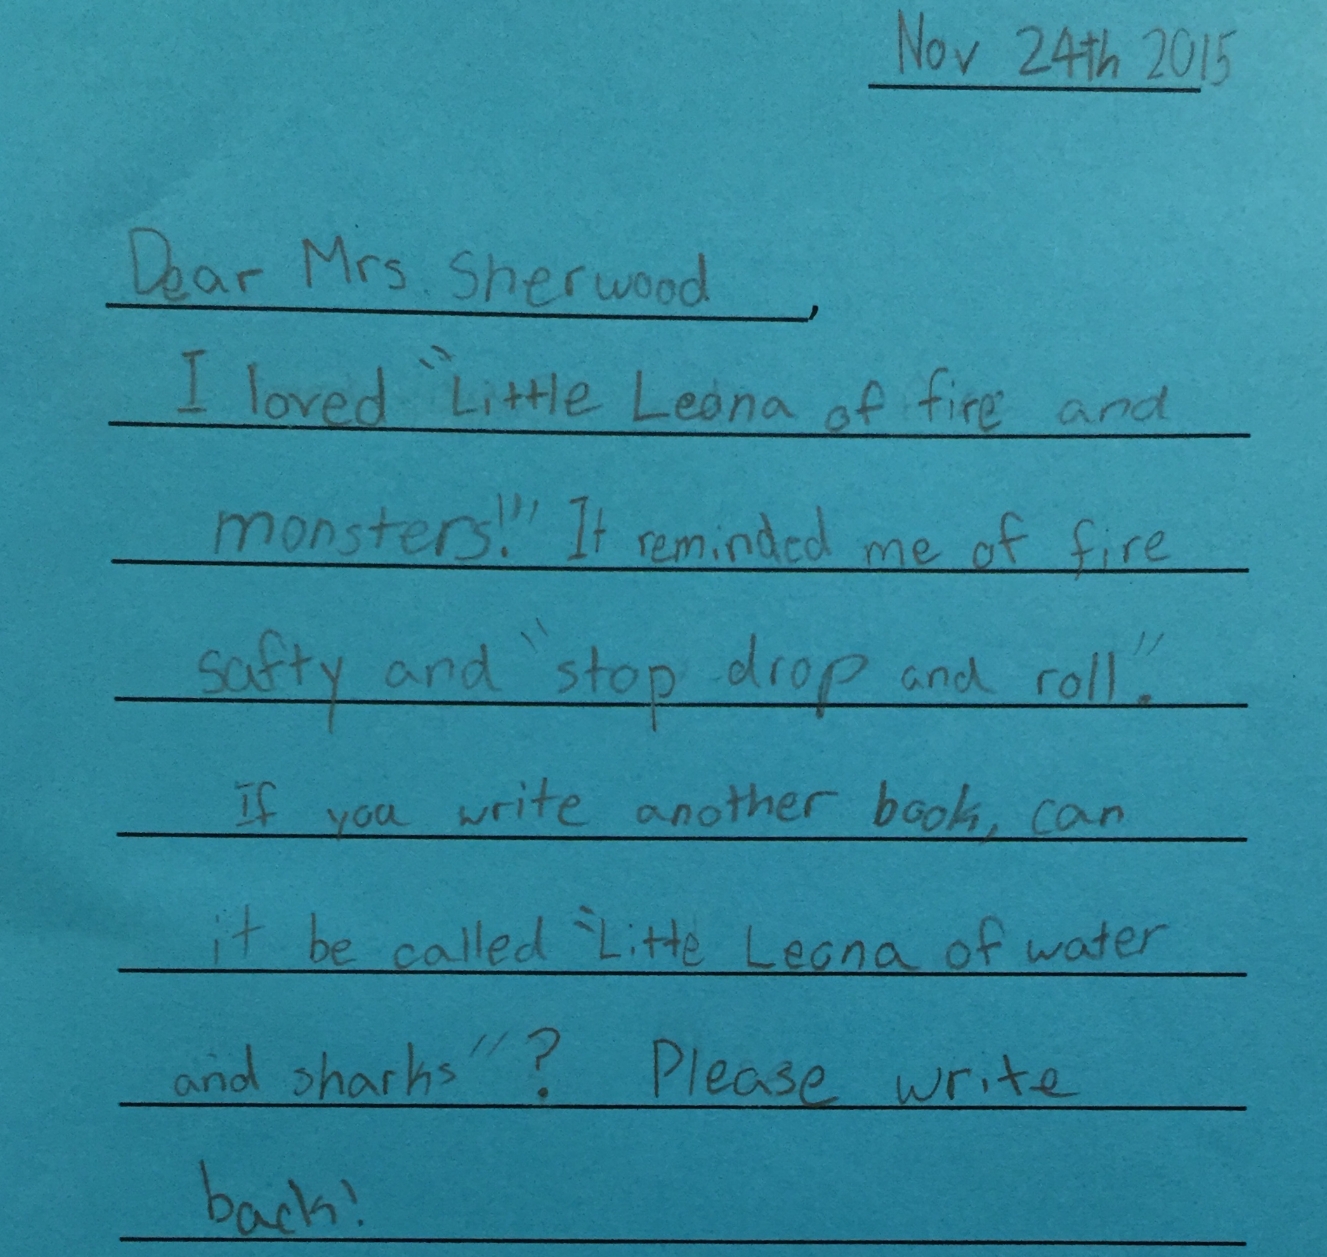 Nov 24th 2015
Dear Mrs. Sherwood,
I loved "Little Leona of fire and
monsters!" It reminded me of fire
safty and "stop drop and roll."
If you write another book, can
it be called "Little Leona of water
and sharks"? Please write
back!